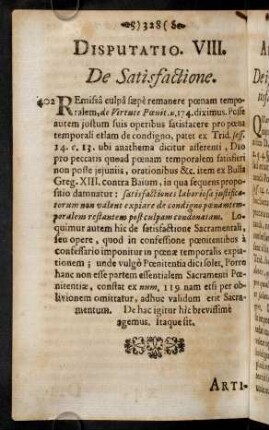 ☙)328(❧
DISPUTATIO. VIII.
De Satisfactione.
402 REmissâ culpâ sæpè remanere pœnam tempo-
ralem, de Virtute Pœnit. n. 174. diximus. Posse
autem justum suis operibus satisfacere pro pœna
temporali etiam de condigno, patet ex Trid. sess.
14. c. 13. ubi anathema dicitur asserenti, Deo
pro peccatis quoad pœnam temporalem satisfieri
non posse jejuniis, orationibus &c. item ex Bulla
Greg. XIII. contra Baium, in qua sequens propo-
sitio damnatur: satisfactiones laboriosæ justifica-
torum non valent expiare de condigno pœnam tem-
poralem restantem post culpam condonatam. Lo-
quimur autem hic de satisfactione Sacramentali,
seu opere, quod in confessione pœnitentibus à
confessario imponitur in pœnæ temporalis expia-
tionem; unde vulgò Pœnitentia dici solet, Porro
hanc non esse partem essentialem Sacramenti Pœ-
nitentiæ, constat ex num. 119 nam etsi per ob-
livionem omittatur, adhuc validum erit Sacra-
mentum. De hac igitur hic brevissimè
agemus. Itaque sit.
ARTI-